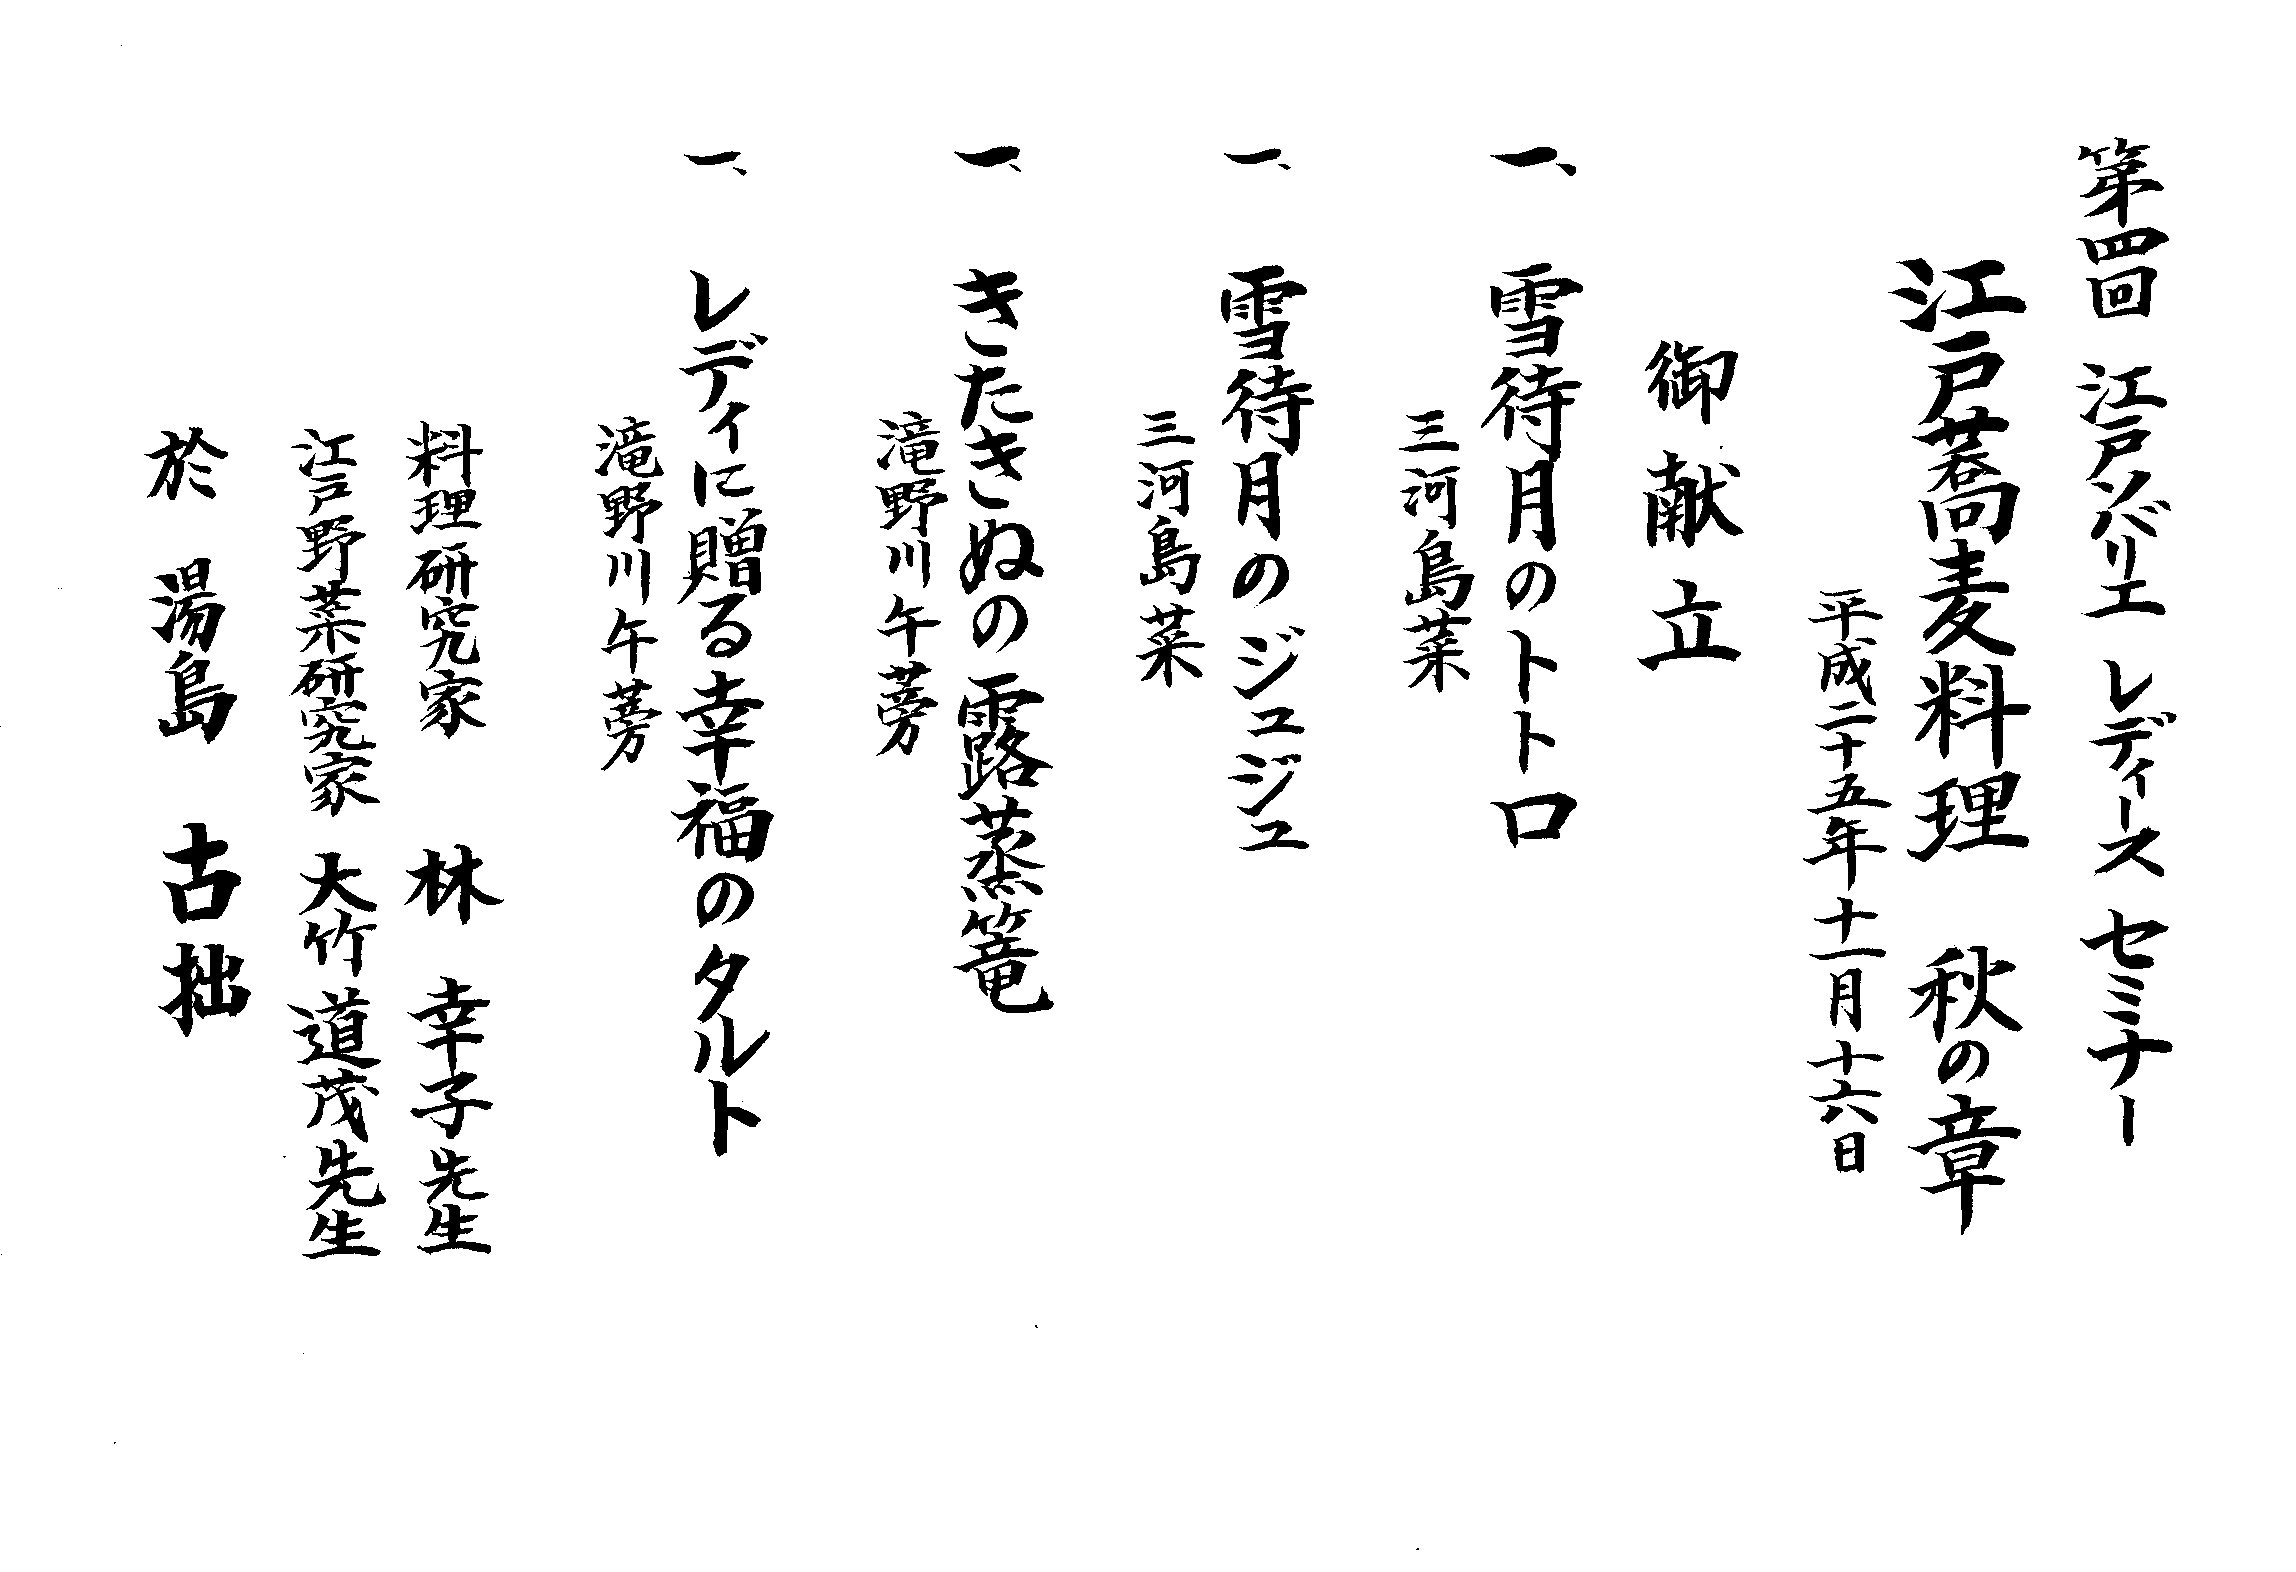 第四回 江戸ソバリエ レディース セミナー
江戸蕎麦料理 秋の章
平成二十五年十一月十六日
御献立
一、雪待月のトトロ
三河島菜
一、雪待月のジュジュ
三河島菜
一、きたきぬの露蒸篭
滝野川午蒡
一、レディに贈る幸福のタルト
滝野川午蒡
料理研究家 林 幸子先生
江戸野菜研究家 大竹道茂先生
於 湯島 古拙